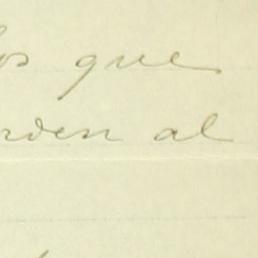 os que
rden al